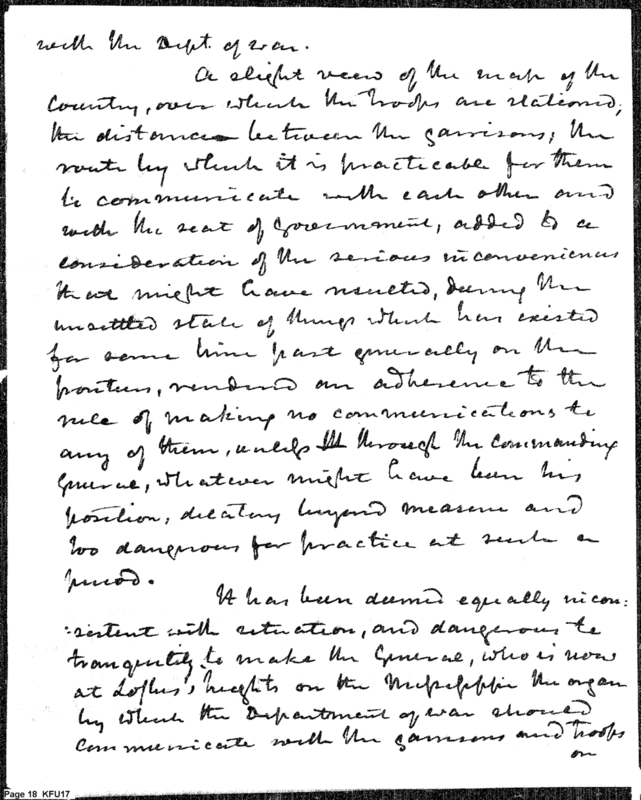 with the Dept. of war.
A slight view of the map of the
Country, over which the troops are stationed,
the distance between the garrisons, the
route by which it is practicable for them
to communicate with each other and
with the seat of Government, added to a
consideration of the serious inconveniences
that might have resulted, during the
unsettled state of things which has existed
for some time past generally on the
frontiers, rendered an adherence to the
rule of making no communications to
any of them, unless through the commanding
General, whatever might have been his
position, dilatory beyond measure and
too dangerous for practice at such a
period.
It has been deemed equally incon:
:sistent with situation, and dangerous to
tranquility to make the General, who is now
at Loftus's heights on the Mississippi the organ
by which the Department of war should
communicate with the garrisons and troops
on
Page 18 KFU17